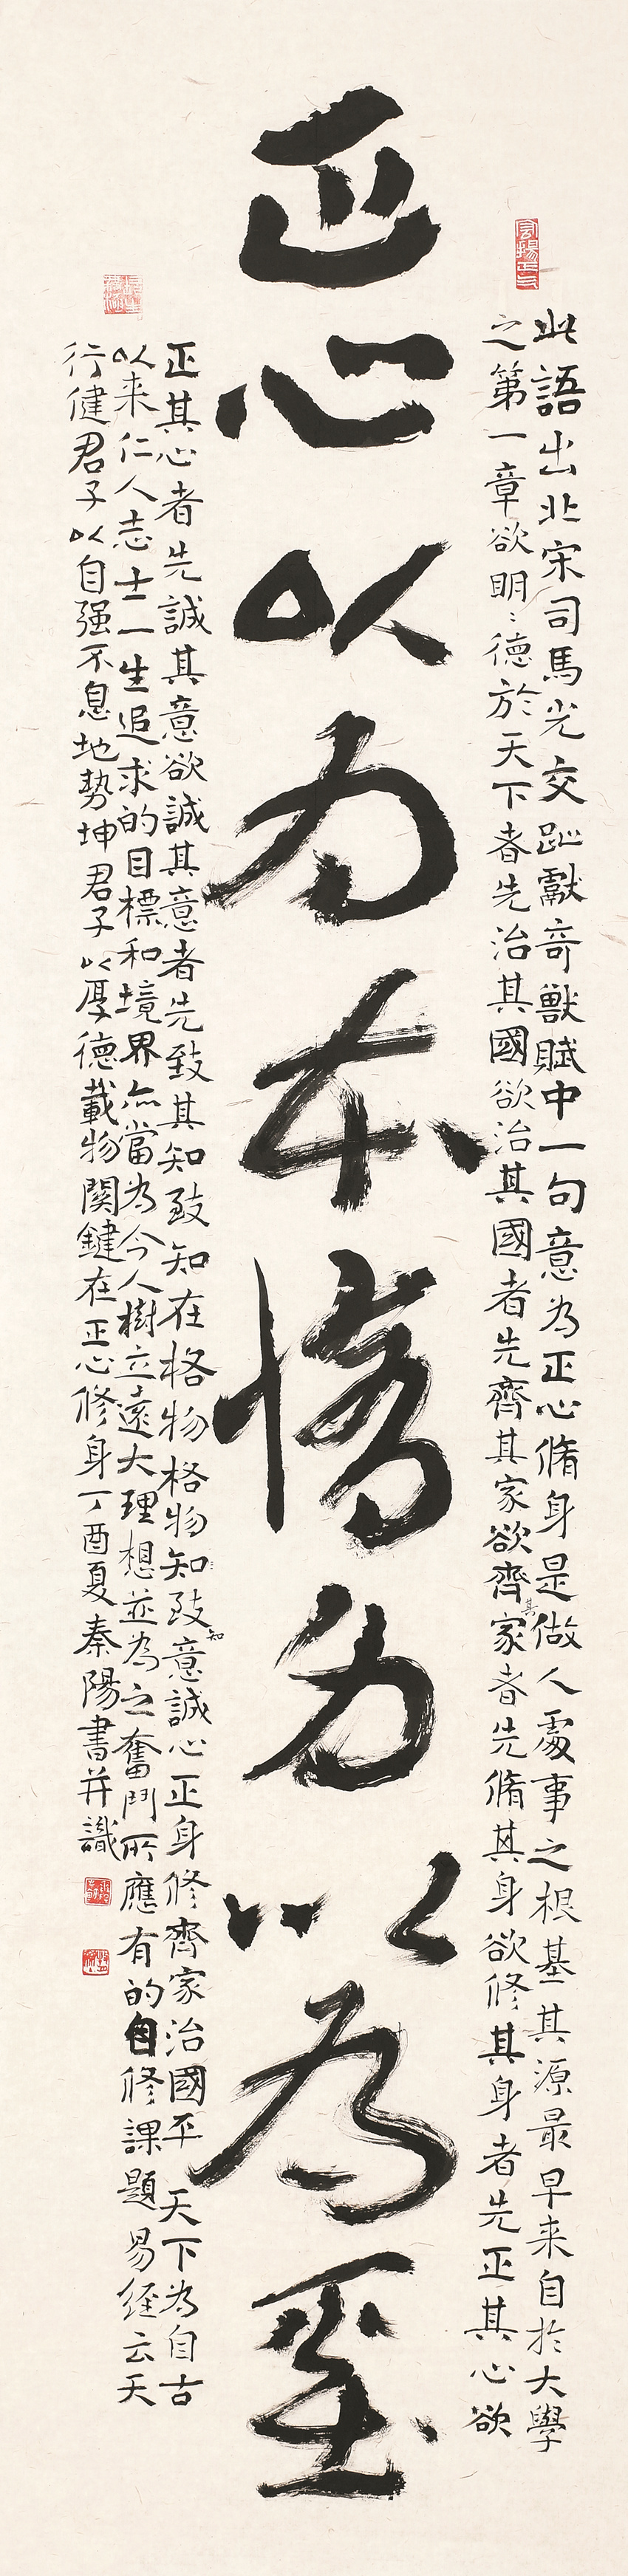 正心以为本脩身以为基
此語出北宋司馬光交趾獻奇獸賦中一句意為正心脩身是做人處事之根基其源最早来自於大學
之第一章欲明〻德於天下者先治其國欲治其國者先齊其家欲齊其家者先脩其身欲修其身者先正其心欲
正其心者先誠其意欲誠其意者先致其知致知在格物格物知致知意誠心正身修齊家治國平天下為自古
以来仁人志士一生追求的目標和境界亦當為今人樹立遠大理想並為之奮鬥所應有的自修課題易經云天
行健君子以自强不息地勢坤君子以厚德載物關鍵在正心修身丁酉夏秦陽書并識